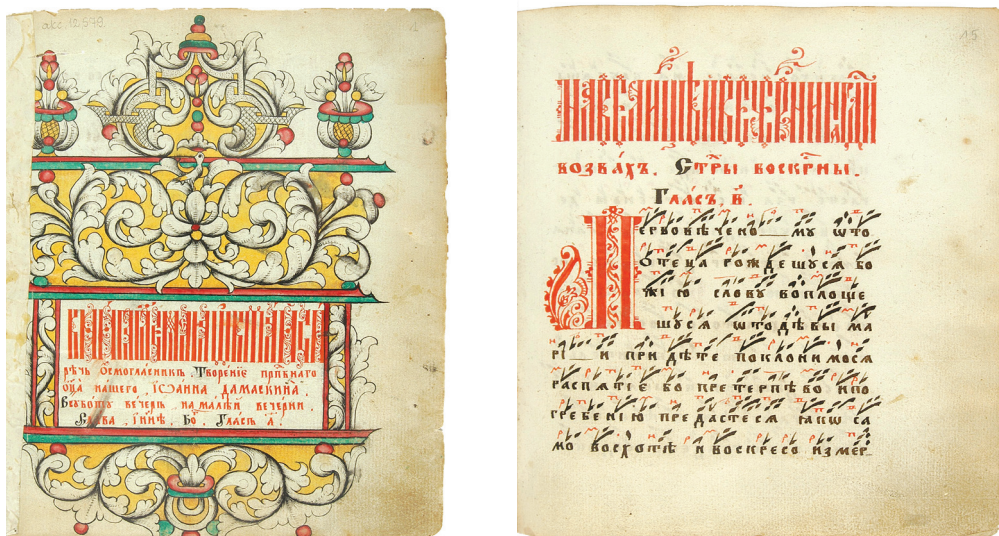 акс. 12.878.
1
рѣчь Ѻсмогласникъ Творенїе прпⷣбнаго
ѻц҃а нашего їѾанна дамаскина.
Всꙋбѡтꙋ вечеръ на малѣй вечерни.
Слава. ІНнѣ. Бо. Гласъ а҃.
15
НАВЕЛИЦѢЙ ВЕЧЕРНИ НАГДИ
возва́хъ. Стры воскрⷭ҇ны.
Гласъ, в҃.
Первовѣчено му ѡто
Ѻтеца рождешꙋся бо
жїю словꙋ воплоще
шꙋся ѡто дѣвы ма
рї и придѣте поклонимося
распятїе бо претерпѣво ипо
гребенїю предастеся якѡ са
мо восхотѣ ивоскресо изме́р